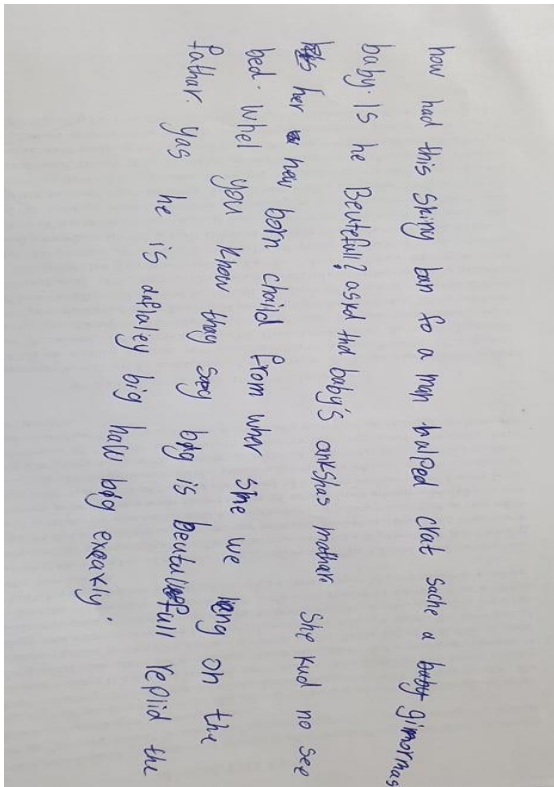 how had this skiny ban fo a man hulped crat sache a gimormas
baby. Is he Beutefull? askd tha baby's ankshas mathar she kud no see
her new born chaild from wher she we lang on the
bed. whel you know thay say big is beutullefull repliid the
fathar. yas he is daflatey big haw big exeakly.